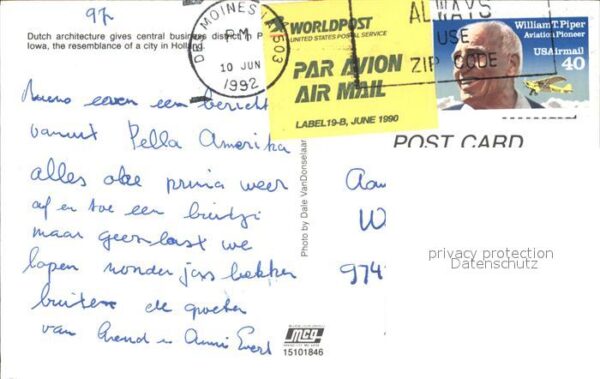 97
Dutch architecture gives central business district in P
Iowa, the resemblance of a city in Holland
DES MOINES IA 503
P.M.
10 JUN
1992
WORLDPOST
UNITED STATES POSTAL SERVICE
PAR AVION
AIR MAIL
LABEL 19-B, JUNE 1990
ALWAYS
USE
ZIP CODE
William T. Piper
Aviation Pioneer
USAirmail
40
POST CARD
even een bericht
vanuit Pella Amerika
alles oke prima weer
af en toe een
maar geen last we
lopen zonder jas lekker
buiten de groeten
van Arend en Annie Evert
Photo by Dale VanDonselaar
Aan
W
974
privacy protection
Datenschutz
mcg
15101846